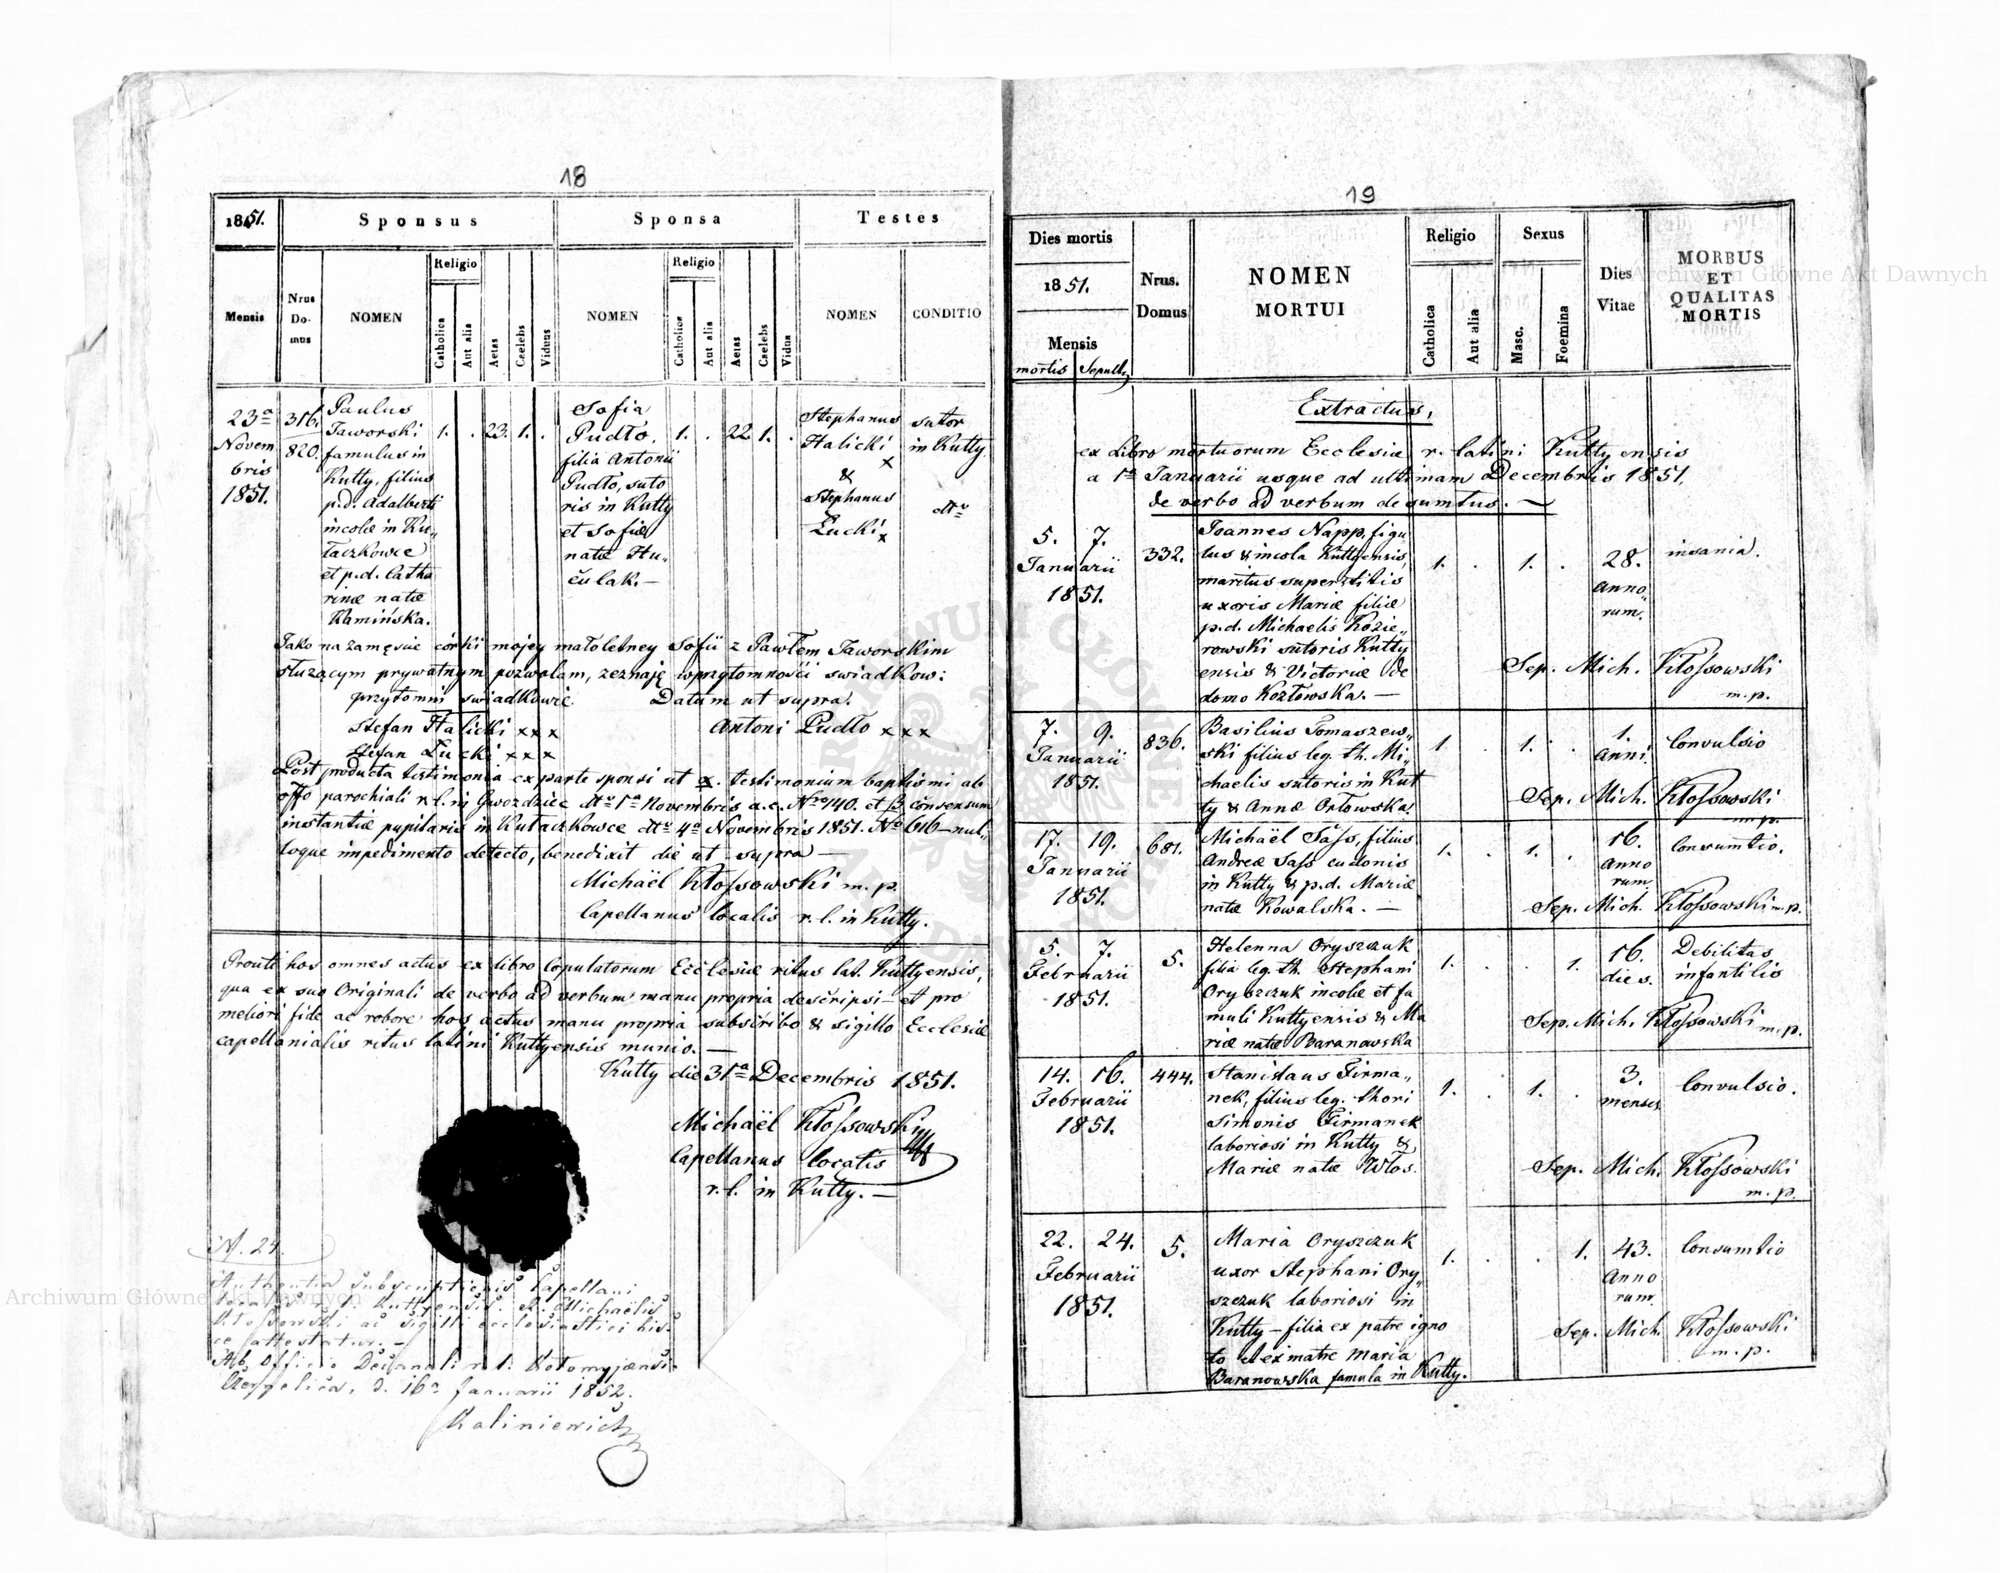 18
1851.
Sponsus
Sponsa
Testes
Mensis
Nrus Do- mus
NOMEN
Religio
Catholica
Aut alia
Aetas
Caelebs
Viduus
NOMEN
Religio
Catholica
Aut alia
Aetas
Caelebs
Vidua
NOMEN
CONDITIO
23a
Novem
bris
1851.
316.
820.
Paulus
Jaworski
famulus in
Kutty, filius
p.d. Adalberti
incolæ in Ku„
łaczkowce
et p.d. Catha
rinæ natæ
Kamińska.
1. . 23. 1. .
Sofia
Pudło,
filia Antonii
Pudło, suto
ris in Kutty
et Sofiæ
natæ Hu„
culak. —
1. . 22 1. .
Stephanus
Halicki
x
&
Stephanus
Łucki x
sutor
in Kutty
dtto
Jako na zamęście córki mojey małoletney Sofii z Pawłem Jaworskim
służącym prywatnym pozwalam, zeznaję w przytomności swiadkow:
przytomni swiadkowie. Datum ut supra.
Stefan Halicki x x x Antoni Pudło x x x
Stefan Łucki x x x
Post producta testimonia ex parte sponsi ut α. testimonium baptismi ab
offo parochiali r. l. in Gwozdziec dtto 1a Novembris a.c. Nro 140. et β consensum
instantiæ pupilaris in Kułaczkowce dtto 4a Novembris 1851. No 616 — nul„
loque impedimento detecto, benedixit die ut supra —
Michaël Kłossowski m. p.
Capellanus localis r. l. in Kutty.
Prouti hos omnes actus ex libro Copulatorum Ecclesiæ ritus lat. Kuttyensis,
qua ex suo Originali de verbo ad verbum manu propria descripsi — et pro
meliori fide ac robore hos actus manu propria subscribo & sigillo Ecclesiæ
capellanialis ritus latini Kuttyensis munio. —
Kutty die 31a Decembris 1851.
Michaël Kłossowski
Capellanus localis
r. l. in Kutty. —
N. 24.
Authentia subscriptionis Capellani
localis r. l. Kuttyensis R. Michaëlis
Kłossowski ac sigilli ecclesiastici his„
ce attestatur. —
Ab Officio Decanali r. l. Kołomyjensi
d. 16a Januarii 1852.
Kaliniewicz
19
Dies mortis
1851.
Mensis
mortis Sepult.
Nrus. Domus
NOMEN
MORTUI
Religio
Catholica
Aut alia
Sexus
Masc.
Foemina
Dies
Vitae
MORBUS
ET
QUALITAS
MORTIS
Extractus,
ex Libro mortuorum Ecclesiæ r. latini Kuttyensis
a 1a Januarii usque ad ultimam Decembris 1851.
de verbo ad verbum desumtus. —
5. 7.
Januarii
1851.
332.
Joannes Napp, figu„
lus & incola Kuttyensis,
maritus superstitis
uxoris Mariæ filiæ
p.d. Michaelis Kozie„
rowski sutoris Kutty
ensis & Victoriæ de
domo Kozłowska. —
1. . 1. .
28.
Anno„
rum.
insania.
Sep. Mich. Kłossowski
m. p.
7. 9.
Januarii
1851.
836.
Basilius Tomaszew„
ski filius leg. th. Mi„
chaelis sutoris in Kut
ty & Annæ Orłowska.
1 . 1. .
1.
Anni.
Convulsio
Sep. Mich. Kłossowski
m. p.
17. 19.
Januarii
1851.
681.
Michaël Sass, filius
Andreæ Sass cudonis
in Kutty & p.d. Mariæ
natæ Kowalska. —
1. . 1. .
16.
Anno
rum.
Consumtio.
Sep. Mich. Kłossowski m. p.
5. 7.
Februarii
1851.
5.
Helenna Oryszczuk
filia leg. th. Stephani
Oryszczuk incolæ et fa
muli Kuttyensis & Ma
riæ natæ Baranowska
1. . . 1.
16.
dies.
Debilitas
infantilis
Sep. Mich. Kłossowski m. p.
14. 16.
Februarii
1851.
444.
Stanislaus Firma„
nek, filius leg. thori
Simonis Firmanek
laboriosi in Kutty &
Mariæ natæ Włos.
1. . 1. .
3.
menses.
Convulsio.
Sep. Mich. Kłossowski
m. p.
22. 24.
Februarii
1851.
5.
Maria Oryszczuk
uxor Stephani Ory„
szczuk laboriosi in
Kutty — filia ex patre igno
to et ex matre Maria
Baranowska famula in Kutty.
1. . . 1.
43.
Anno
rum.
Consumtio
Sep. Mich. Kłossowski
m. p.
Archiwum Główne Akt Dawnych
Archiwum Główne Akt Dawnych
ARCHIWUM GŁÓWNE AKT DAWNYCH